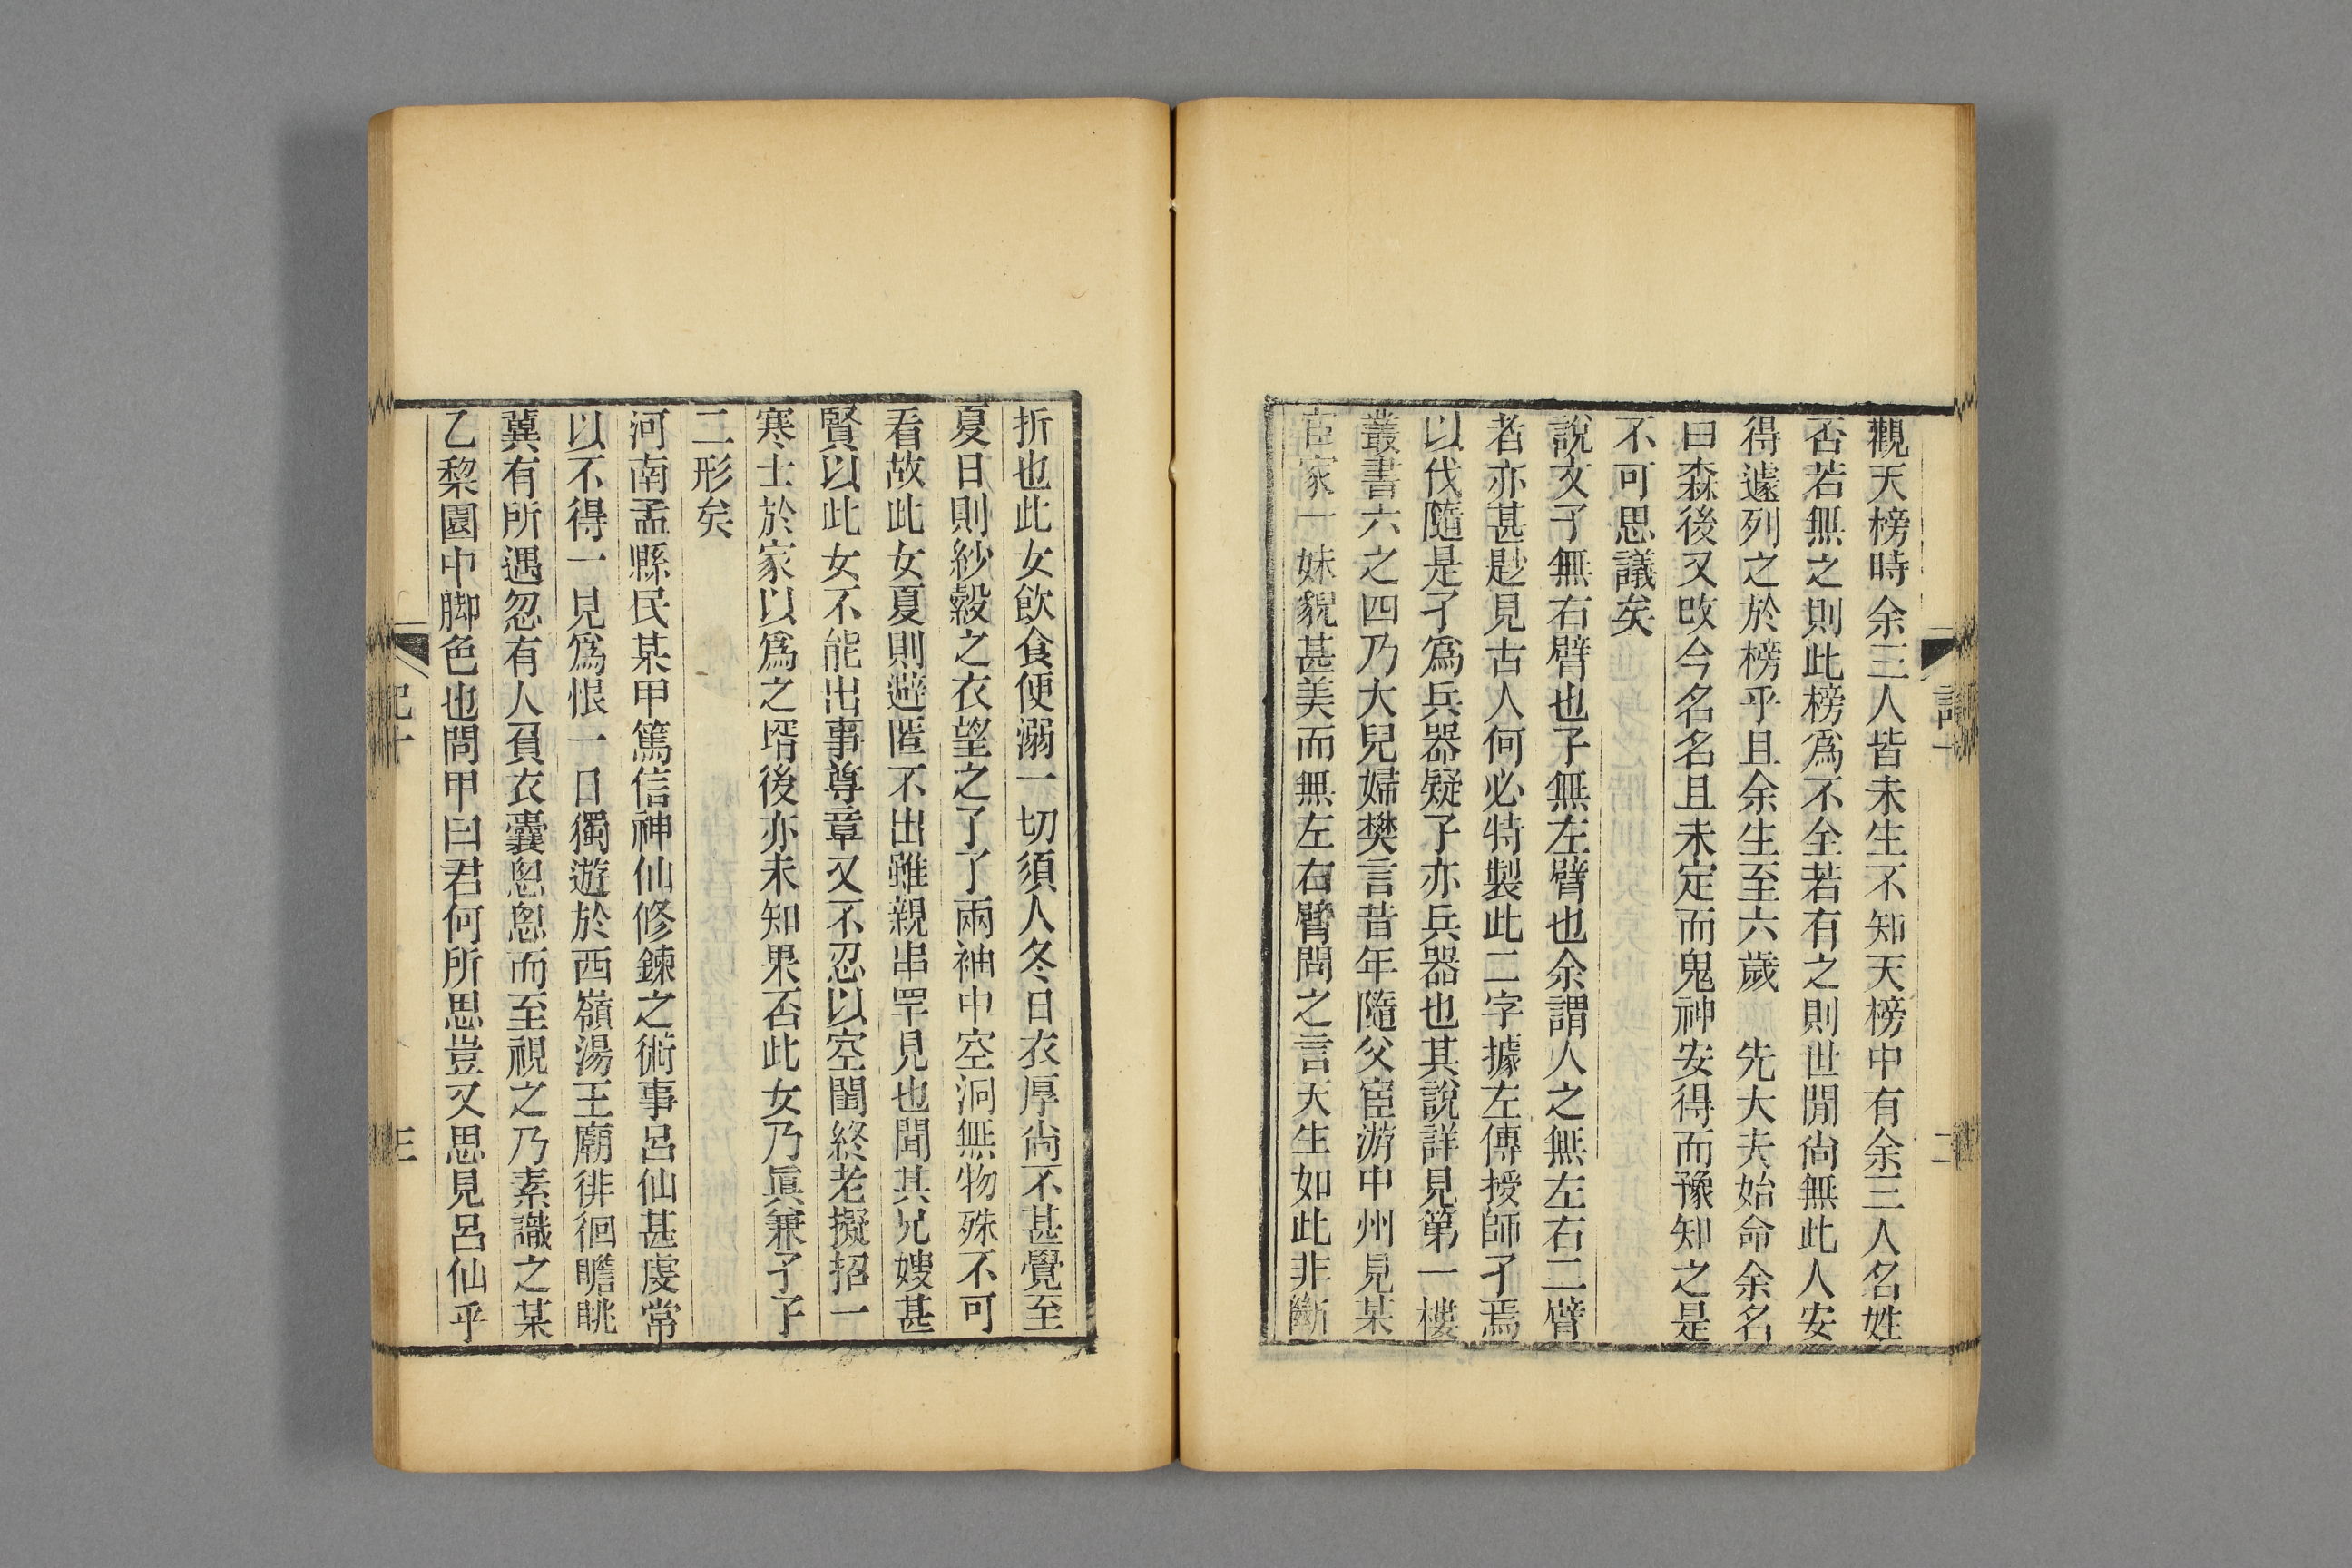 觀天榜時余三人皆未生不知天榜中有余三人名姓
否若無之則此榜爲不全若有之則世閒尙無此人安
得遽列之於榜乎且余生至六歲　先大夫始命余名
曰森後又改今名名且未定而鬼神安得而豫知之是
不可思議矣
說文孑無右臂也孓無左臂也余謂人之無左右二臂
者亦甚尟見古人何必特製此二字據左傳授師孑焉
以伐隨是孑爲兵器疑孓亦兵器也其說詳見第一樓
叢書六之四乃大兒婦樊言昔年隨父宦游中州見某
宦家一妹貌甚美而無左右臂問之言天生如此非斷
二
折也此女飮食便溺一切須人冬日衣厚尙不甚覺至
夏日則紗縠之衣望之了了兩袖中空洞無物殊不可
看故此女夏則避匿不出雖親串罕見也聞其兄嫂甚
賢以此女不能出事尊章又不忍以空閨終老擬招一
寒士於家以爲之壻後亦未知果否此女乃眞兼孑孓
二形矣
河南孟縣民某甲篤信神仙修鍊之術事呂仙甚虔常
以不得一見爲恨一日獨遊於西嶺湯王廟徘徊瞻眺
冀有所遇忽有人負衣囊悤悤而至視之乃素識之某
乙棃園中脚色也問甲曰君何所思豈又思見呂仙乎
記十
三